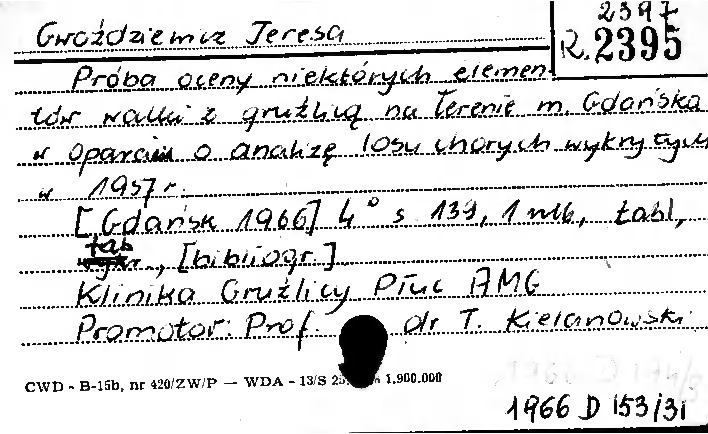 2397
R. 2395
Gwoździewicz Teresa
Próba oceny niektórych elemen
tów walki z gruźlicą na terenie m. Gdańska
w oparciu o analizę losu chorych wykrytych
w 1957 r.
[Gdańsk 1966] 4° s 139, 1 nlb, tabl,
tab
, [bibliogr.]
Klinika Gruźlicy Płuc AMG
Promotor: Prof. dr T. Kielanowski
CWD - B-15b, nr 420/ZW/P — WDA - 13/S 1.900.000
1966 D 153/31